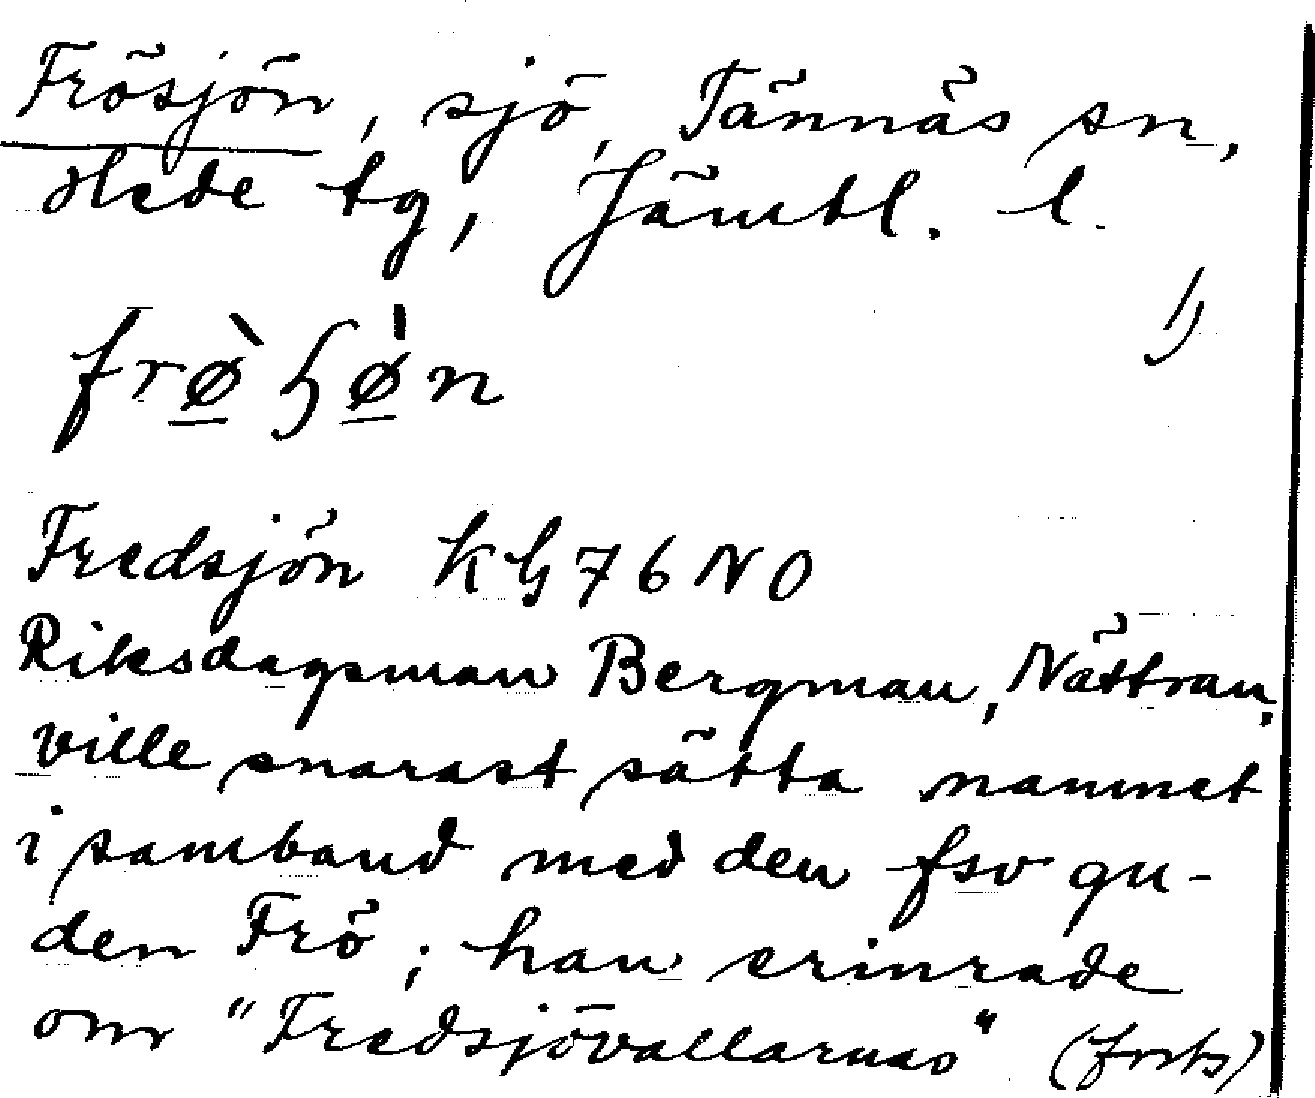 Frösjön, sjö, Tännäs sn,
Hede tg, Jämtl. l.
1)
frø̠̀ɧø̠̀n
Fredsjön KG 76 NO
Riksdagsman Bergman, Nättran,
ville snarast sätta namnet
i samband med den fsv gu-
den Frö; han erinrade
om "Fredsjövallarnas" (forts)